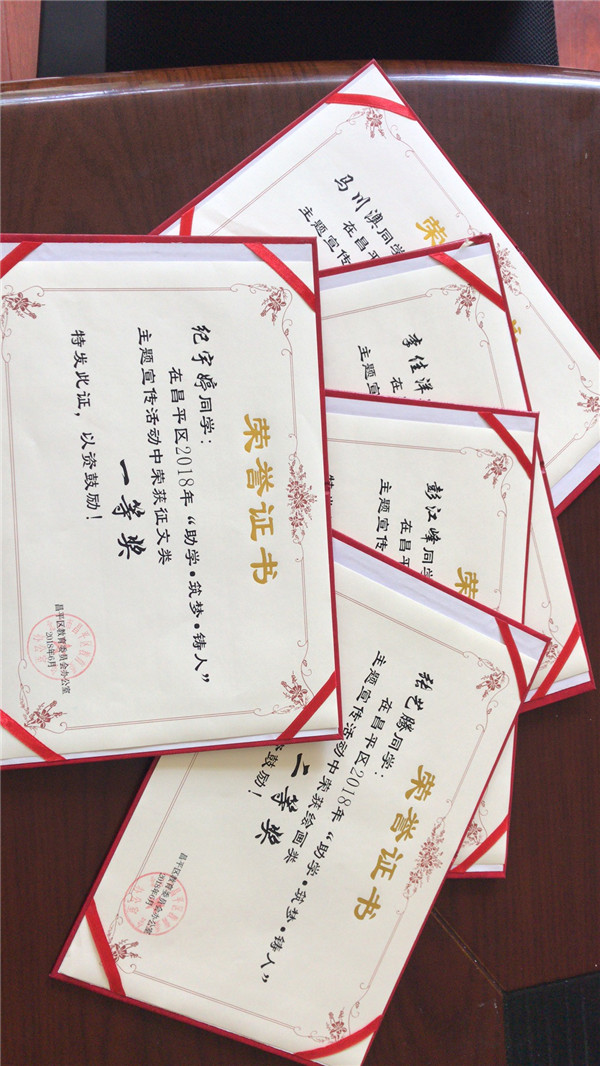 荣誉证书
纪宇婷同学：
在昌平区2018年“助学•筑梦•铸人”
主题宣传活动中荣获征文类
一等奖
特发此证，以资鼓励！
昌平区教育委员会办公室
2018年6月
荣誉证书
张艺腾同学：
在昌平区2018年“助学•筑梦•铸人”
主题宣传活动中荣获绘画类
二等奖
鼓励！
昌平区教育委员会办公室
2018年6月
荣
彭江峰同学
在昌平
主题宣传
特发
李佳洋
在昌
主题宣
荣
马川漁同学
在昌平
主题宣传